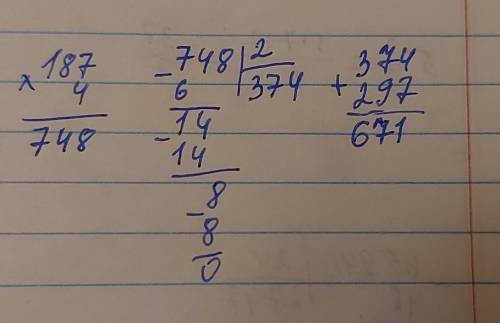 × 187
4
748
- 748 | 2
6 374
- 14
14
- 8
8
0
+ 374
297
671